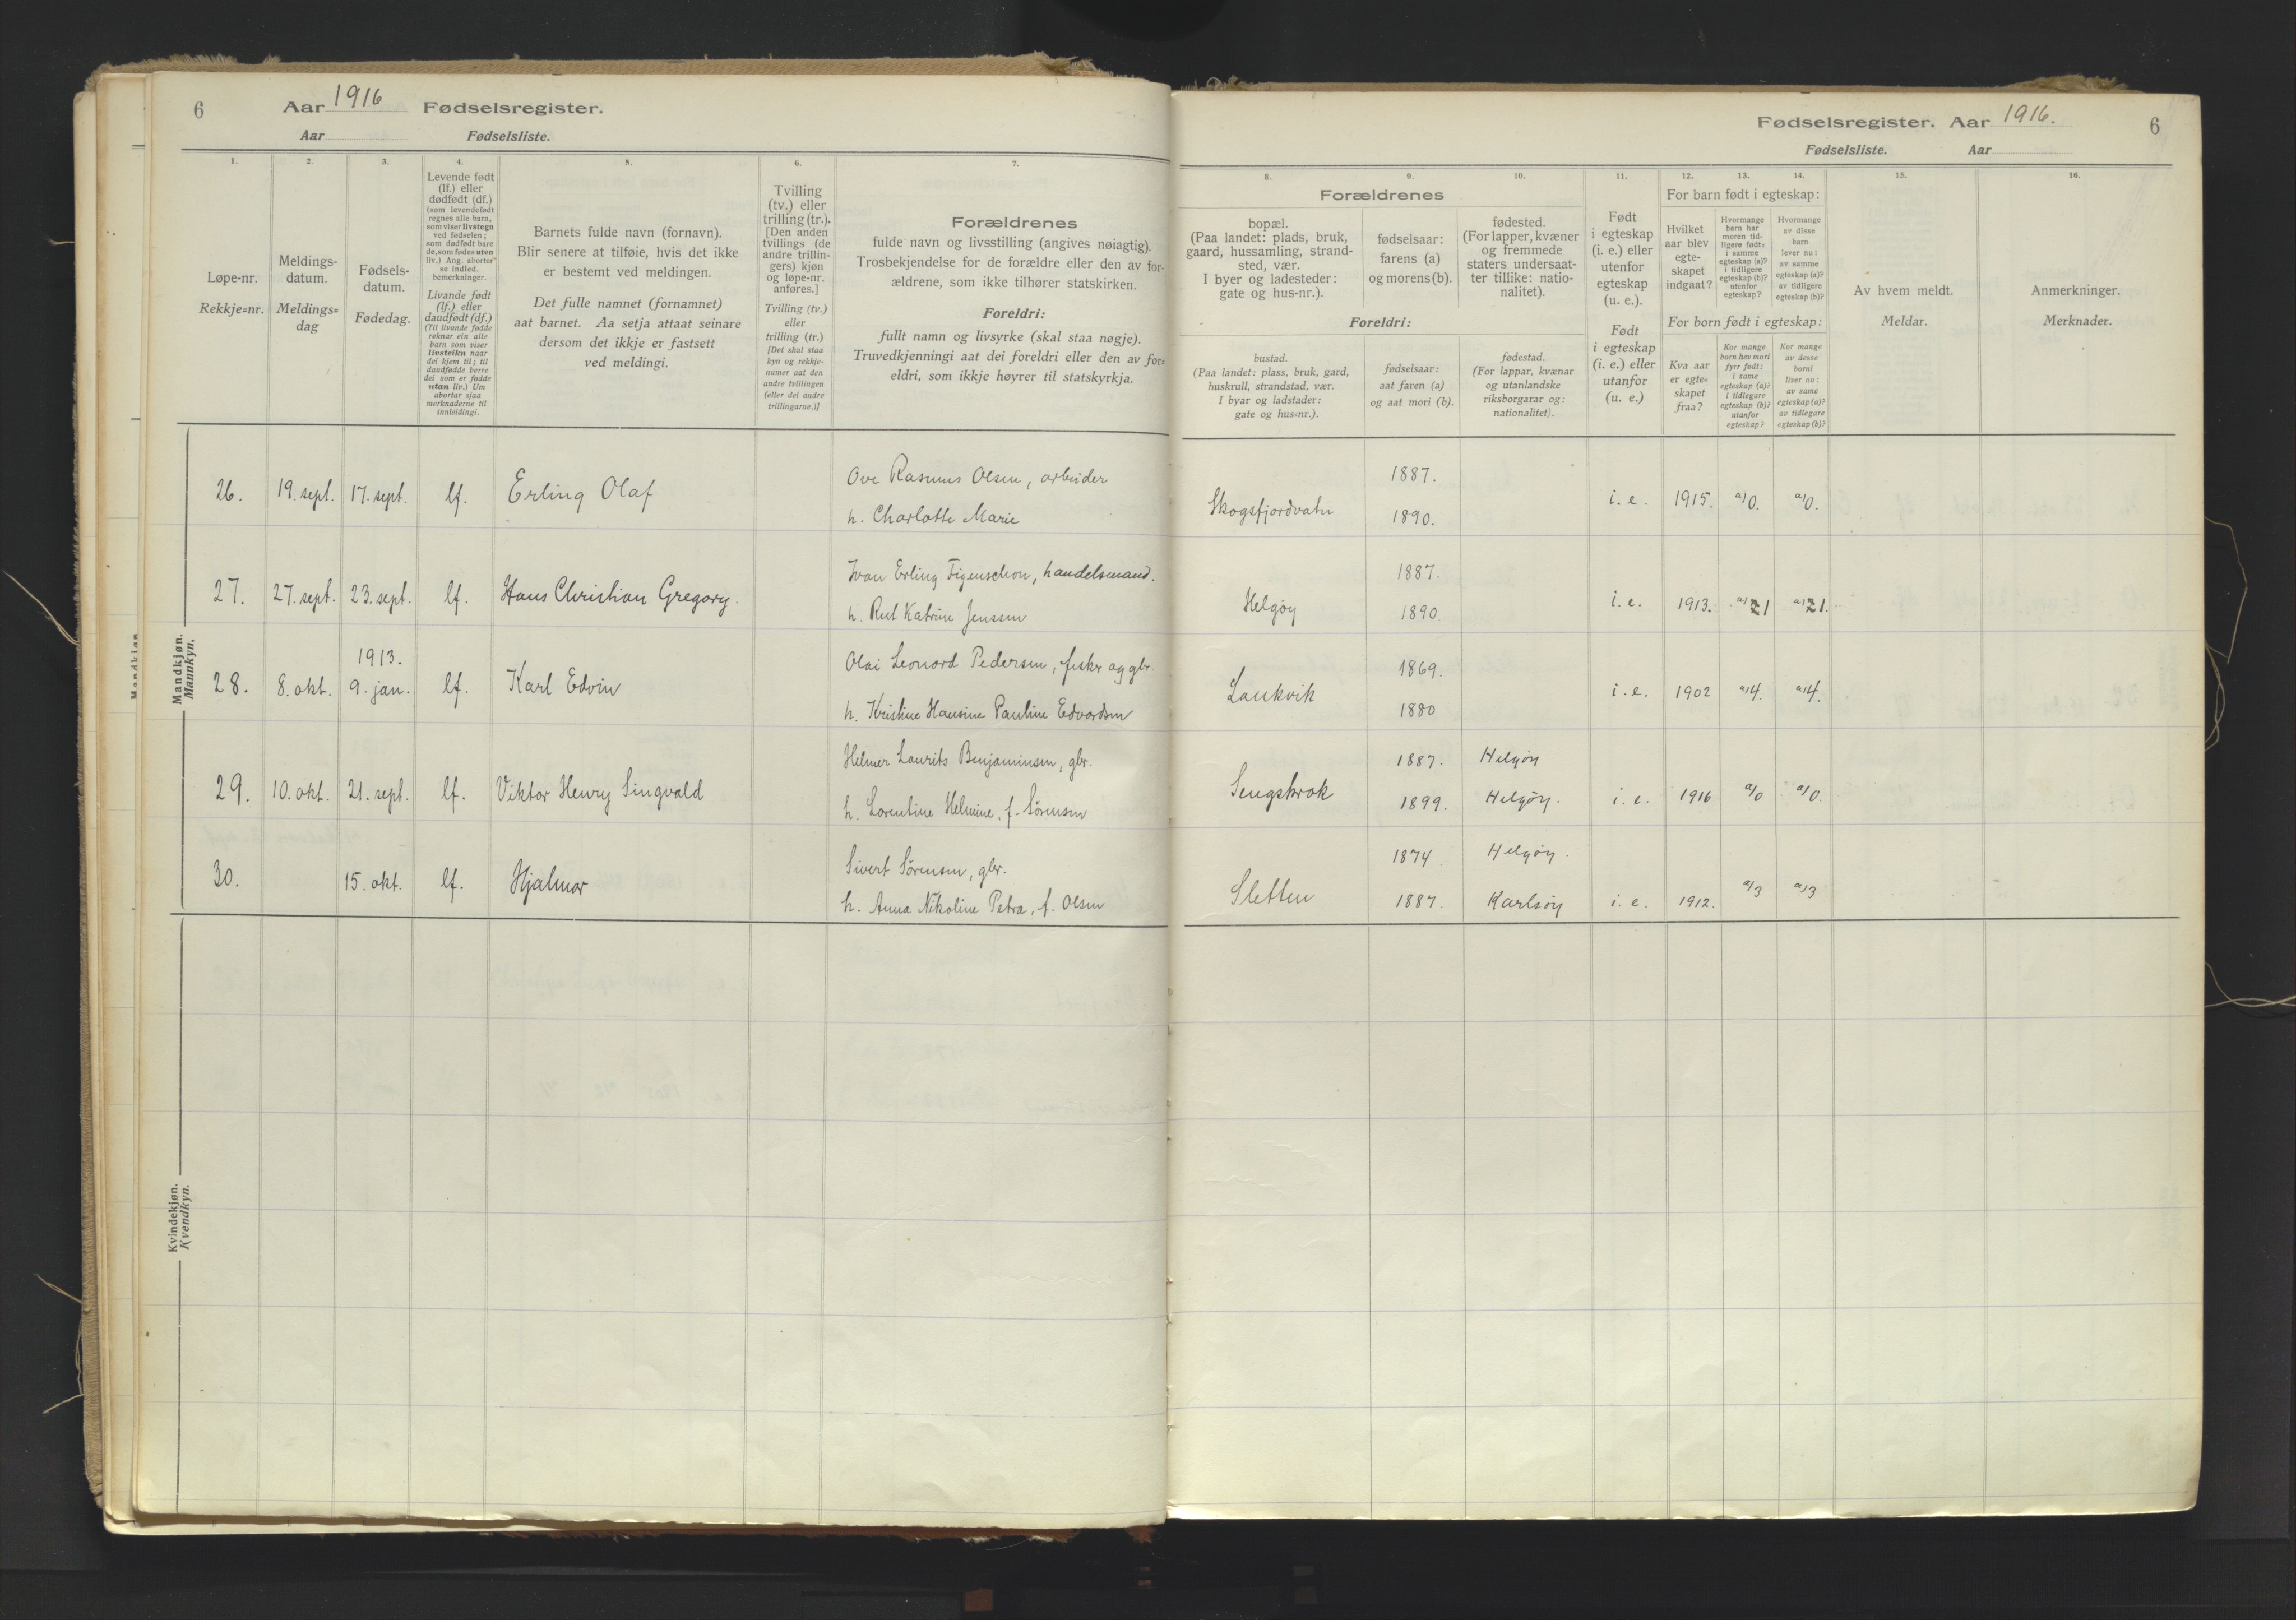 6 Aar 1916 Fødselsregister.
Aar Fødselsliste.
1. 2. 3. 4. 5. 6. 7.
Løpe-nr.
Rekkje=nr.
Meldings-
datum.
Meldings=
dag
Fødsels-
datum.
Fødedag.
Levende født
(lf.) eller
dødfødt (df.)
(som levendefødt
regnes alle barn,
som viser livstegn
ved fødselen;
som dødfødt bare
de, som fødes uten
liv.) Ang. aborter
se indled.
bemerkninger.
Livande født
(lf.) eller
daudfødt (df.)
(Til livande fødde
reknar ein alle
barn som viser
livsteikn naar
dei kjem til; til
daudfødde berre
dei som er fødde
utan liv.) Um
abortar sjaa
merknaderne til
innleidingi.
Barnets fulde navn (fornavn).
Blir senere at tilføie, hvis det ikke
er bestemt ved meldingen.
Det fulle namnet (fornamnet)
aat barnet. Aa setja attaat seinare
dersom det ikkje er fastsett
ved meldingi.
Tvilling
(tv.) eller
trilling (tr.).
[Den anden
tvillings (de
andre trillin-
gers) kjøn
og løpe-nr.
anføres.]
Tvilling (tv.)
eller
trilling (tr.)
[Det skal staa
kyn og rekkje-
numer aat den
andre tvillingen
(eller dei andre
trillingarne.)]
Forældrenes
fulde navn og livsstilling (angives nøiagtig).
Trosbekjendelse for de forældre eller den av for-
ældrene, som ikke tilhører statskirken.
Foreldri:
fullt namn og livsyrke (skal staa nøgje).
Truvedkjenningi aat dei foreldri eller den av for=
eldri, som ikkje høyrer til statskyrkja.
Mandkjøn.
Mannkyn.
26. 19. sept. 17. sept. lf. Erling Olaf
Ove Rasmus Olsen, arbeider
h. Charlotte Marie
27. 27. sept. 23. sept. lf. Hans Christian Gregory.
Ivan Erling Figenschou, handelsmand.
h. Rut Katrine Jenssen
1913.
28. 8. okt. 9. jan. lf. Karl Edvin
Olai Leonard Pedersen, fisker og gbr.
h. Kristine Hansine Pauline Edvardsen
29. 10. okt. 21. sept. lf. Viktor Henry Singvald
Helmer Laurits Benjaminsen, gbr.
h. Lorentine Helmine, f. Sörensen
30. 15. okt. lf. Hjalmar
Sivert Sörensen, gbr.
h. Anna Nikoline Petra, f. Olsen
Kvindekjøn.
Kvendkyn.
Fødselsregister. Aar 1916. 6
Fødselsliste. Aar
8. 9. 10. 11. 12. 13. 14. 15. 16.
Forældrenes
bopæl.
(Paa landet: plads, bruk,
gaard, hussamling, strand-
sted, vær.
I byer og ladesteder:
gate og hus-nr.).
fødselsaar:
farens (a)
og morens (b).
fødested.
(For lapper, kvæner
og fremmede
staters undersaat-
ter tillike: natio-
nalitet).
Foreldri:
bustad.
(Paa landet: plass, bruk, gard,
huskrull, strandstad, vær.
I byar og ladstader:
gate og hus=nr.).
fødselsaar:
aat faren (a)
og aat mori (b).
fødestad.
(For lappar, kvænar
og utanlandske
riksborgarar og:
nationalitet).
Født
i egteskap
(i. e.) eller
utenfor
egteskap
(u. e.).
Født
i egteskap
(i. e.) eller
utanfor
(u. e.)
For barn født i egteskap:
Hvilket
aar blev
egte-
skapet
indgaat?
Hvormange
barn har
moren tid-
ligere født:
i samme
egteskap (a)?
i tidligere
egteskap (b)?
utenfor
egteskap?
Hvormange
av disse
barn
lever nu:
av samme
egteskap (a)?
av tidligere
egteskap (b)?
For born født i egteskap:
Kva aar
er egte=
skapet
fraa?
Kor mange
born hev mori
fyrr født:
i same
egteskap (a)?
i tidlegare
egteskap (b)?
utanfor
egteskap?
Kor mange
av desse
borni
liver no:
av same
egteskap (a)?
av tidlegare
egteskap (b)?
Av hvem meldt.
Meldar.
Anmerkninger.
Merknader.
1887.
Skogsfjordvatn i. e. 1915. a/0. a/0.
1890.
1887.
Helgöy i. e. 1913. a/1 a/1.
1890.
1869.
Laukvik i. e. 1902 a/4. a/4.
1880
1887. Helgöy
Sengskrok i. e. 1916 a/0 a/0.
1899. Helgöy.
1874. Helgöy.
Sletten i. e. 1912. a/3 a/3
1887. Karlsöy